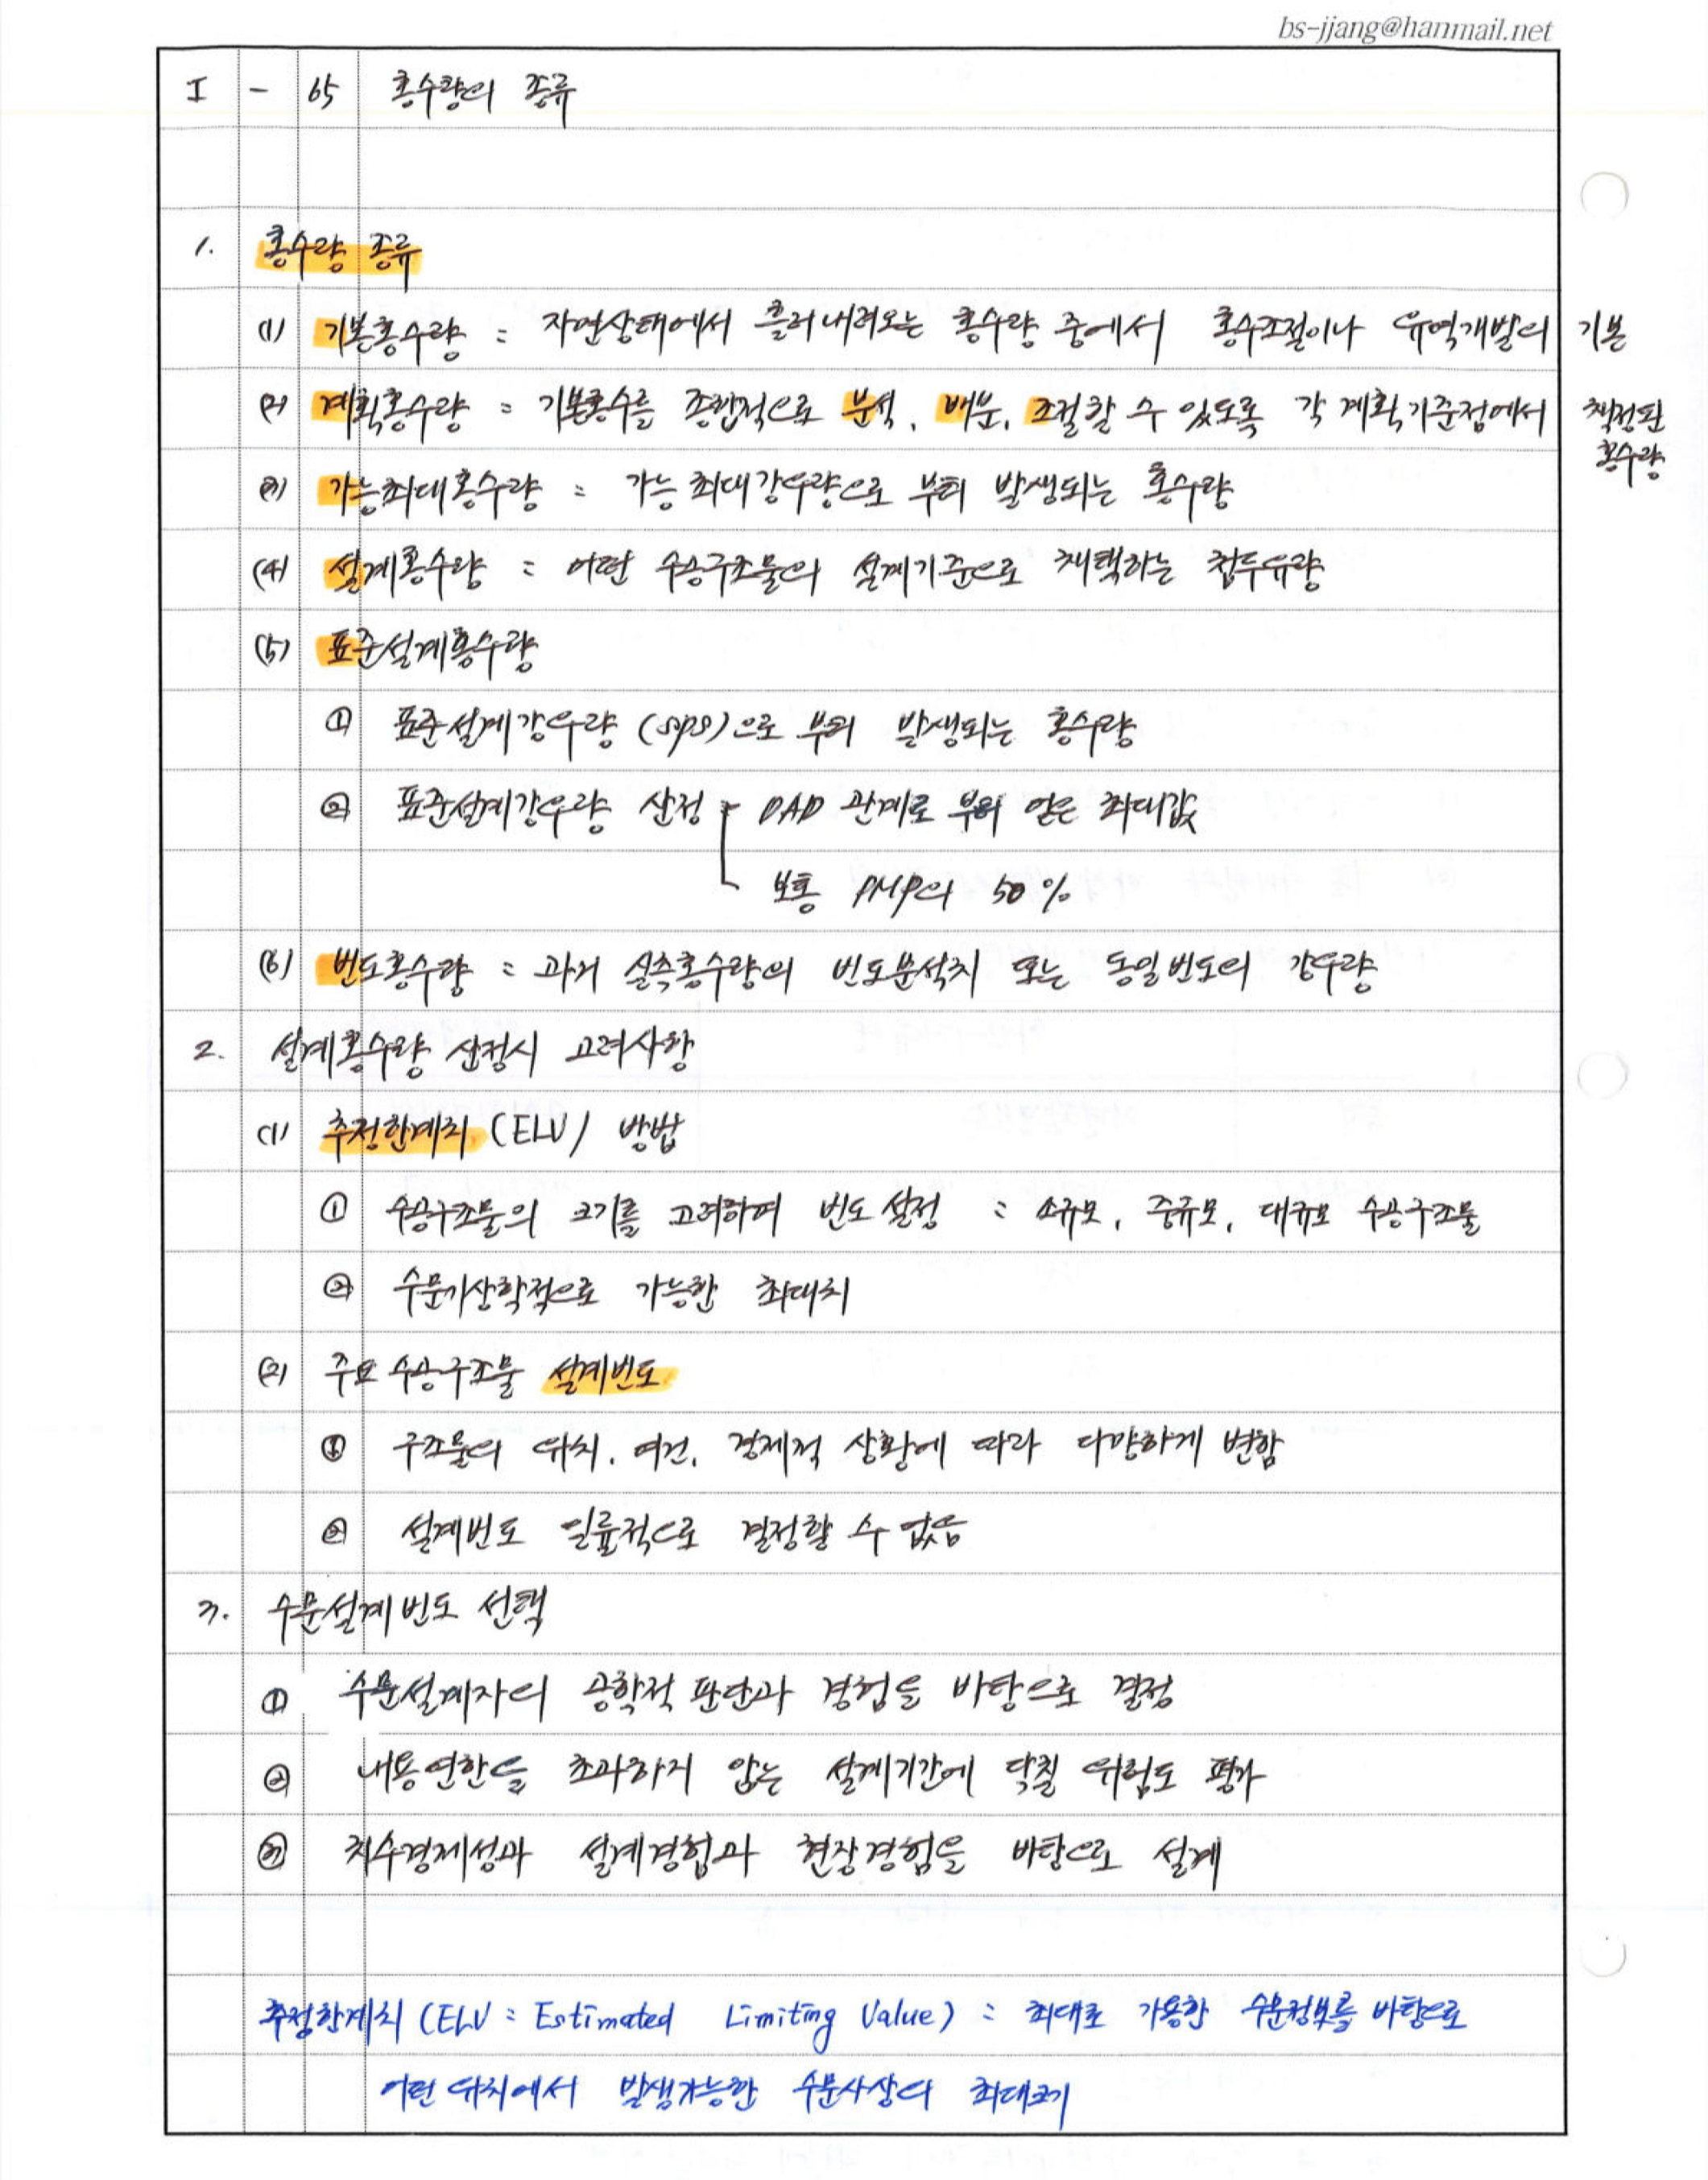 bs-jjang@hanmail.net
I - 65 홍수량의 종류
1. 홍수량 종류
(1) 기본홍수량 : 자연상태에서 흘러내려오는 홍수량 중에서 홍수조절이나 유역개발의 기본
(2) 계획홍수량 : 기본홍수를 종합적으로 분석, 배분, 조절할 수 있도록 각 계획기준점에서 책정된
홍수량
(3) 가능최대홍수량 : 가능최대강우량으로 부터 발생되는 홍수량
(4) 설계홍수량 : 어떤 수공구조물의 설계기준으로 채택하는 첨두유량
(5) 표준설계홍수량
① 표준설계강우량 (SPS)으로 부터 발생되는 홍수량
② 표준설계강우량 산정 - DAD 관계로 부터 얻은 최대값
보통 PMP의 50 %
(6) 빈도홍수량 : 과거 실측홍수량의 빈도분석치 또는 동일빈도의 강우량
2. 설계홍수량 산정시 고려사항
(1) 추정한계치 (ELV) 방법
① 수공구조물의 크기를 고려하여 빈도 설정 : 소규모, 중규모, 대규모 수공구조물
② 수문기상학적으로 가능한 최대치
(2) 주요 수공구조물 설계빈도
① 구조물의 위치, 여건, 경제적 상황에 따라 다양하게 변함
② 설계빈도 일률적으로 결정할 수 없음
3. 수문설계빈도 선택
① 수문설계자의 공학적 판단과 경험을 바탕으로 결정
② 내용연한을 초과하지 않는 설계기간에 닥칠 위험도 평가
③ 치수경제성과 설계경험과 현장경험을 바탕으로 설계
추정한계치 (ELV : Estimated Limiting Value) : 최대로 가용한 수문정보를 바탕으로
어떤 위치에서 발생가능한 수문사상의 최대크기